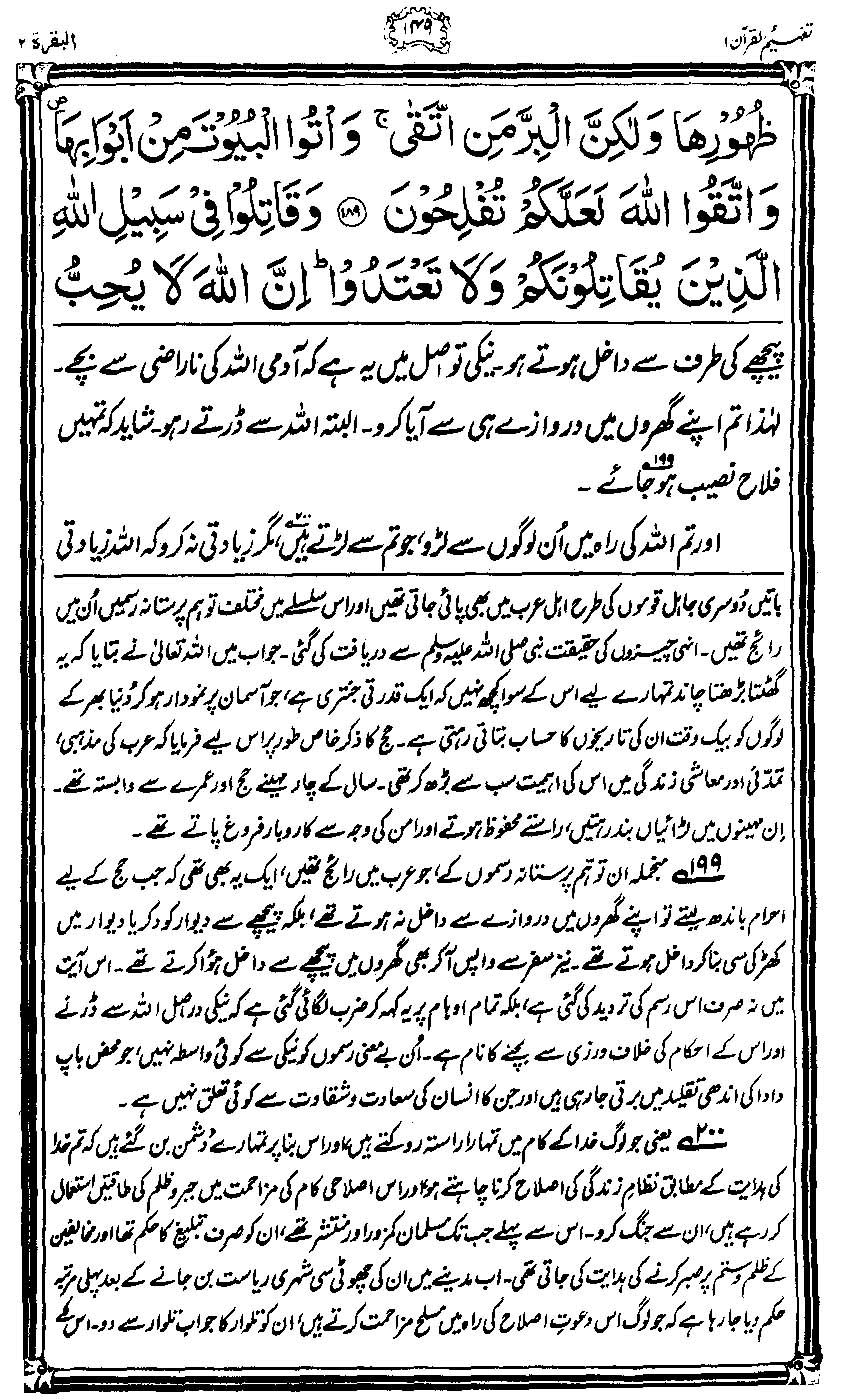 تفہیم القرآن ۱
۱۴۹
البقرۃ ۲
ظُهُوْرِهَا وَلٰكِنَّ الْبِرَّ مَنِ اتَّقٰى ۚ وَاْتُوا الْبُيُوْتَ مِنْ اَبْوَابِهَا ۖ
وَاتَّقُوا اللّٰهَ لَعَلَّكُمْ تُفْلِحُوْنَ ﴿۱۸۹﴾ وَقَاتِلُوْا فِيْ سَبِيْلِ اللّٰهِ
الَّذِيْنَ يُقَاتِلُوْنَكُمْ وَلَا تَعْتَدُوْا ؕ اِنَّ اللّٰهَ لَا يُحِبُّ
پیچھے کی طرف سے داخل ہوتے ہو۔ نیکی تو اصل میں یہ ہے کہ آدمی اللہ کی ناراضی سے بچے۔
لہٰذا تم اپنے گھروں میں دروازے ہی سے آیا کرو۔ البتہ اللہ سے ڈرتے رہو۔ شاید کہ تمہیں
فلاح نصیب ہو جائے ۱۹۹۔
اور تم اللہ کی راہ میں اُن لوگوں سے لڑو، جو تم سے لڑتے ہیں ۲۰۰، مگر زیادتی نہ کرو کہ اللہ زیادتی
باتیں دُوسری جاہل قوموں کی طرح اہل عرب میں بھی پائی جاتی تھیں اور اس سلسلے میں مختلف توہم پرستانہ رسمیں اُن میں
رائج تھیں۔ انہی چیزوں کی حقیقت نبی صلی اللہ علیہ وسلم سے دریافت کی گئی۔ جواب میں اللہ تعالیٰ نے بتایا کہ یہ
گھٹتا بڑھتا چاند تمہارے لیے اس کے سوا کچھ نہیں کہ ایک قدرتی جنتری ہے، جو آسمان پر نمودار ہو کر دُنیا بھر کے
لوگوں کو بیک وقت ان کی تاریخوں کا حساب بتاتی رہتی ہے۔ حج کا ذکر خاص طور پر اس لیے فرمایا کہ عرب کی مذہبی،
تمدّنی اور معاشی زندگی میں اس کی اہمیت سب سے بڑھ کر تھی۔ سال کے چار مہینے حج اور عمرے سے وابستہ تھے۔
اِن مہینوں میں لڑائیاں بند رہتیں، راستے محفوظ ہوتے اور امن کی وجہ سے کاروبار فروغ پاتے تھے۔
۱۹۹ منجملہ ان توہم پرستانہ رسموں کے، جو عرب میں رائج تھیں، ایک یہ بھی تھی کہ جب حج کے لیے
احرام باندھ لیتے تو اپنے گھروں میں دروازے سے داخل نہ ہوتے تھے، بلکہ پیچھے سے دیوار کود کر یا دیوار میں
کھڑکی سی بنا کر داخل ہوتے تھے۔ نیز سفر سے واپس آ کر بھی گھروں میں پیچھے سے داخل ہؤا کرتے تھے۔ اس آیت
میں نہ صرف اس رسم کی تردید کی گئی ہے، بلکہ تمام اوہام پر یہ کہہ کر ضرب لگائی گئی ہے کہ نیکی دراصل اللہ سے ڈرنے
اور اس کے احکام کی خلاف ورزی سے بچنے کا نام ہے۔ اُن بے معنی رسموں کو نیکی سے کوئی واسطہ نہیں، جو محض باپ
دادا کی اندھی تقلید میں برتی جا رہی ہیں اور جن کا انسان کی سعادت و شقاوت سے کوئی تعلق نہیں ہے۔
۲۰۰ یعنی جو لوگ خدا کے کام میں تمہارا راستہ روکتے ہیں، اور اس بنا پر تمہارے دُشمن بن گئے ہیں کہ تم خدا
کی ہدایت کے مطابق نظامِ زندگی کی اصلاح کرنا چاہتے ہو، اور اس اصلاحی کام کی مزاحمت میں جبر و ظلم کی طاقتیں استعمال
کر رہے ہیں، ان سے جنگ کرو۔ اس سے پہلے جب تک مسلمان کمزور اور منتشر تھے، ان کو صرف تبلیغ کا حکم تھا اور مخالفین
کے ظلم و ستم پر صبر کرنے کی ہدایت کی جاتی تھی۔ اب مدینے میں ان کی چھوٹی سی شہری ریاست بن جانے کے بعد پہلی مرتبہ
حکم دیا جا رہا ہے کہ جو لوگ اس دعوتِ اصلاح کی راہ میں مسلح مزاحمت کرتے ہیں، ان کو تلوار کا جواب تلوار سے دو۔ اس کے